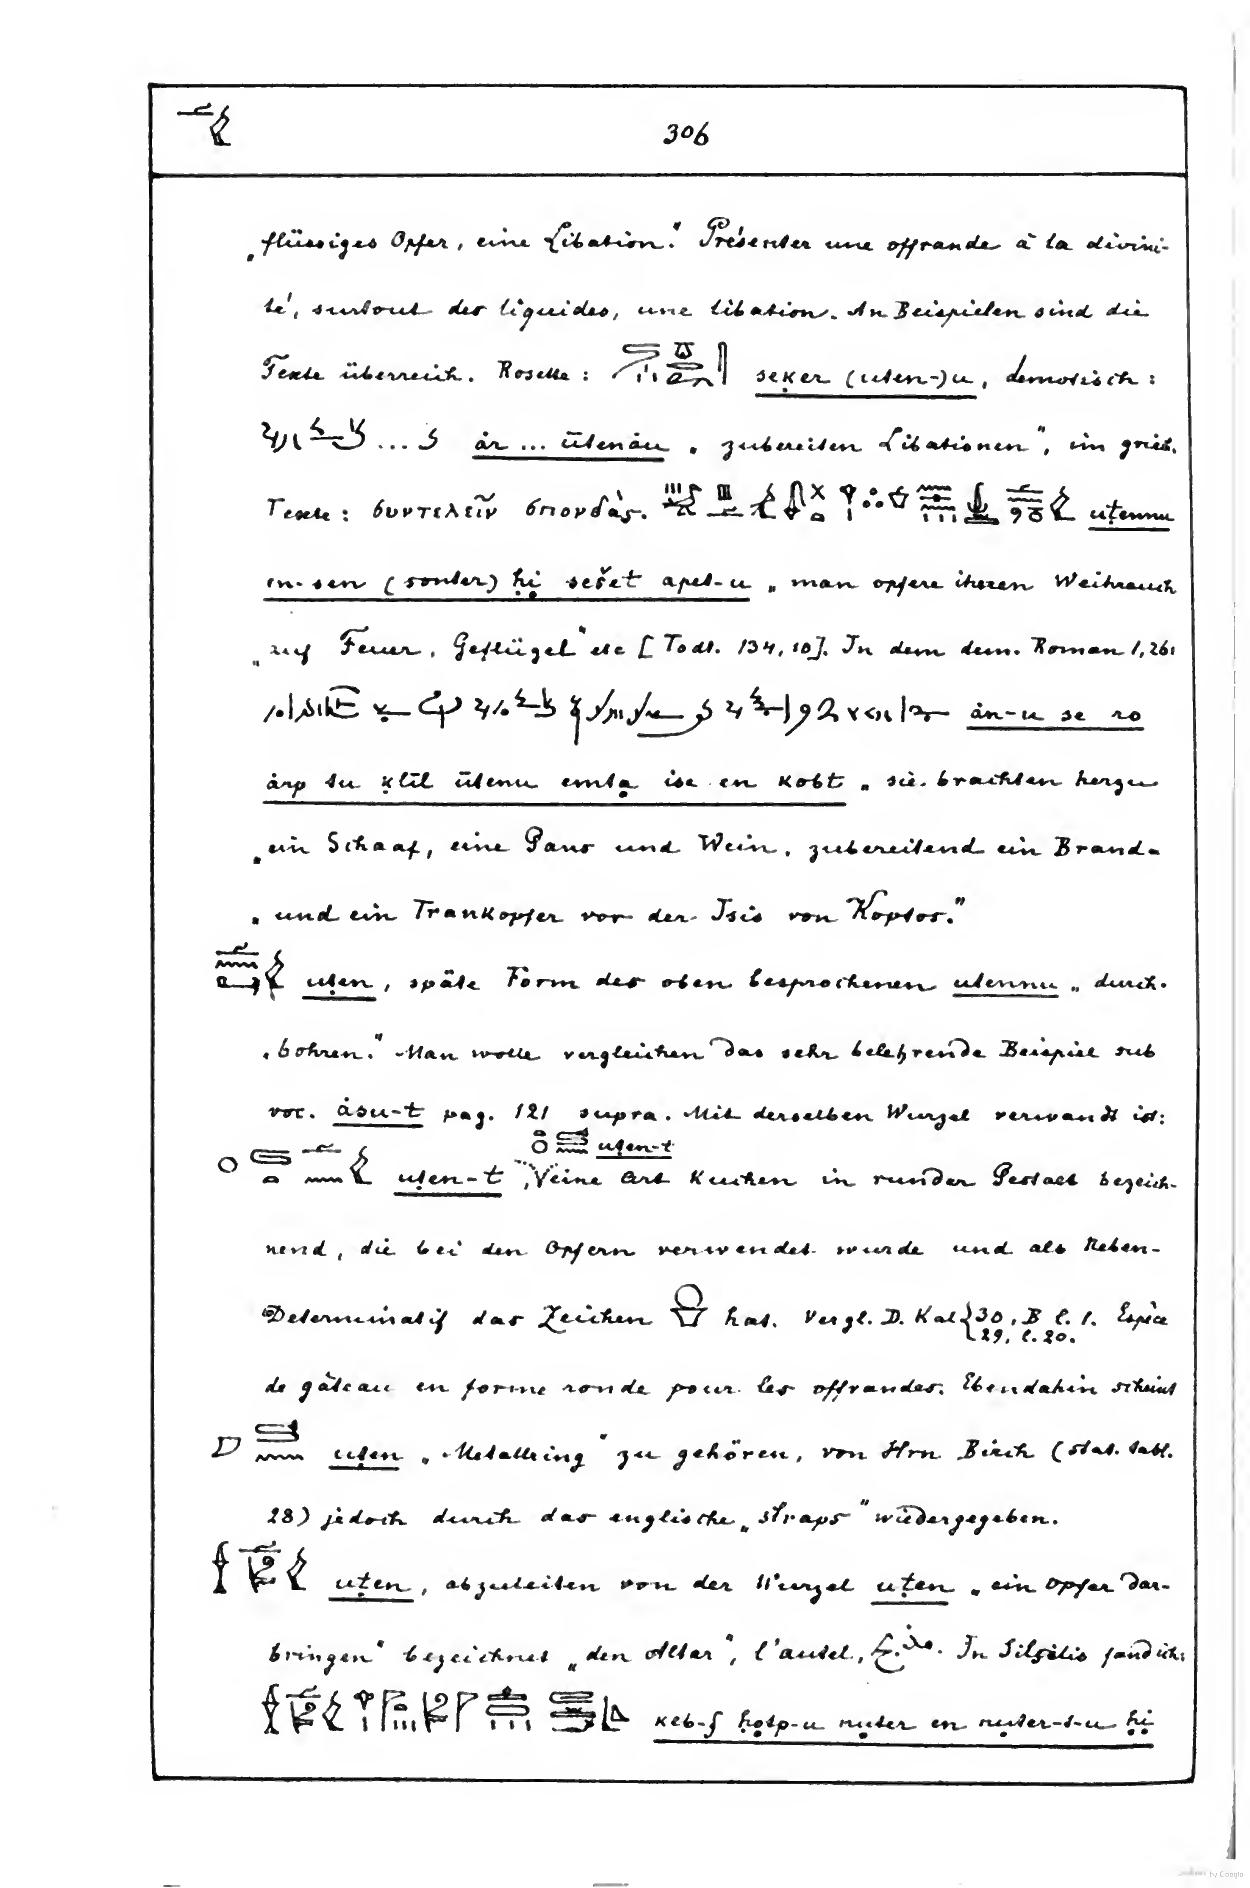 306
„flüssiges Opfer, eine Libation." Présenter une offrande à la divini-
té, surtout des liquides, une libation. An Beispielen sind die
Texte überreich. Rosette: seker (uten-)u, demotisch:
... ȧr ... ūtenȧu „zubereiten Libationen", im griech.
Texte: συντελεῖν σπονδάς. uṭennu
en-sen (sonter) ḥi sešet apet-u „man opfere ihnen Weihrauch
„auf Feuer, Geflügel" etc [Todt. 134,10]. In dem dem. Roman 1,26:
ȧn-u se ro
ȧrp tu ḳlīl ūtenu emta ise en Kobt „sie brachten herzu
„ein Schaaf, eine Gans und Wein, zubereitend ein Brand-
„und ein Trankopfer vor der Isis von Koptos."
uten, späte Form des oben besprochenen utennu „durch-
„bohren." Man wolle vergleichen das sehr belehrende Beispiel sub
voc. ȧsu-t pag. 121 supra. Mit derselben Wurzel verwandt ist:
uten-t
uten-t, eine Art Kuchen in runder Gestalt bezeich-
nend, die bei den Opfern verwendet wurde und als Neben-
Determinatif das Zeichen hat. Vergl. D. Kal. 30, B l. 1. Espèce
29, l. 20.
de gâteau en forme ronde pour les offrandes. Ebendahin scheint
uten „Metallring" zu gehören, von Hrn Birch (stat. tabl.
28) jedoch durch das englische „straps" wiedergegeben.
uṭen, abzuleiten von der Wurzel uṭen „ein Opfer dar-
bringen" bezeichnet „den Altar", l'autel, In Silsilis fand ich:
keb-f ḥotp-u nuter en nuter-t-u ḥi